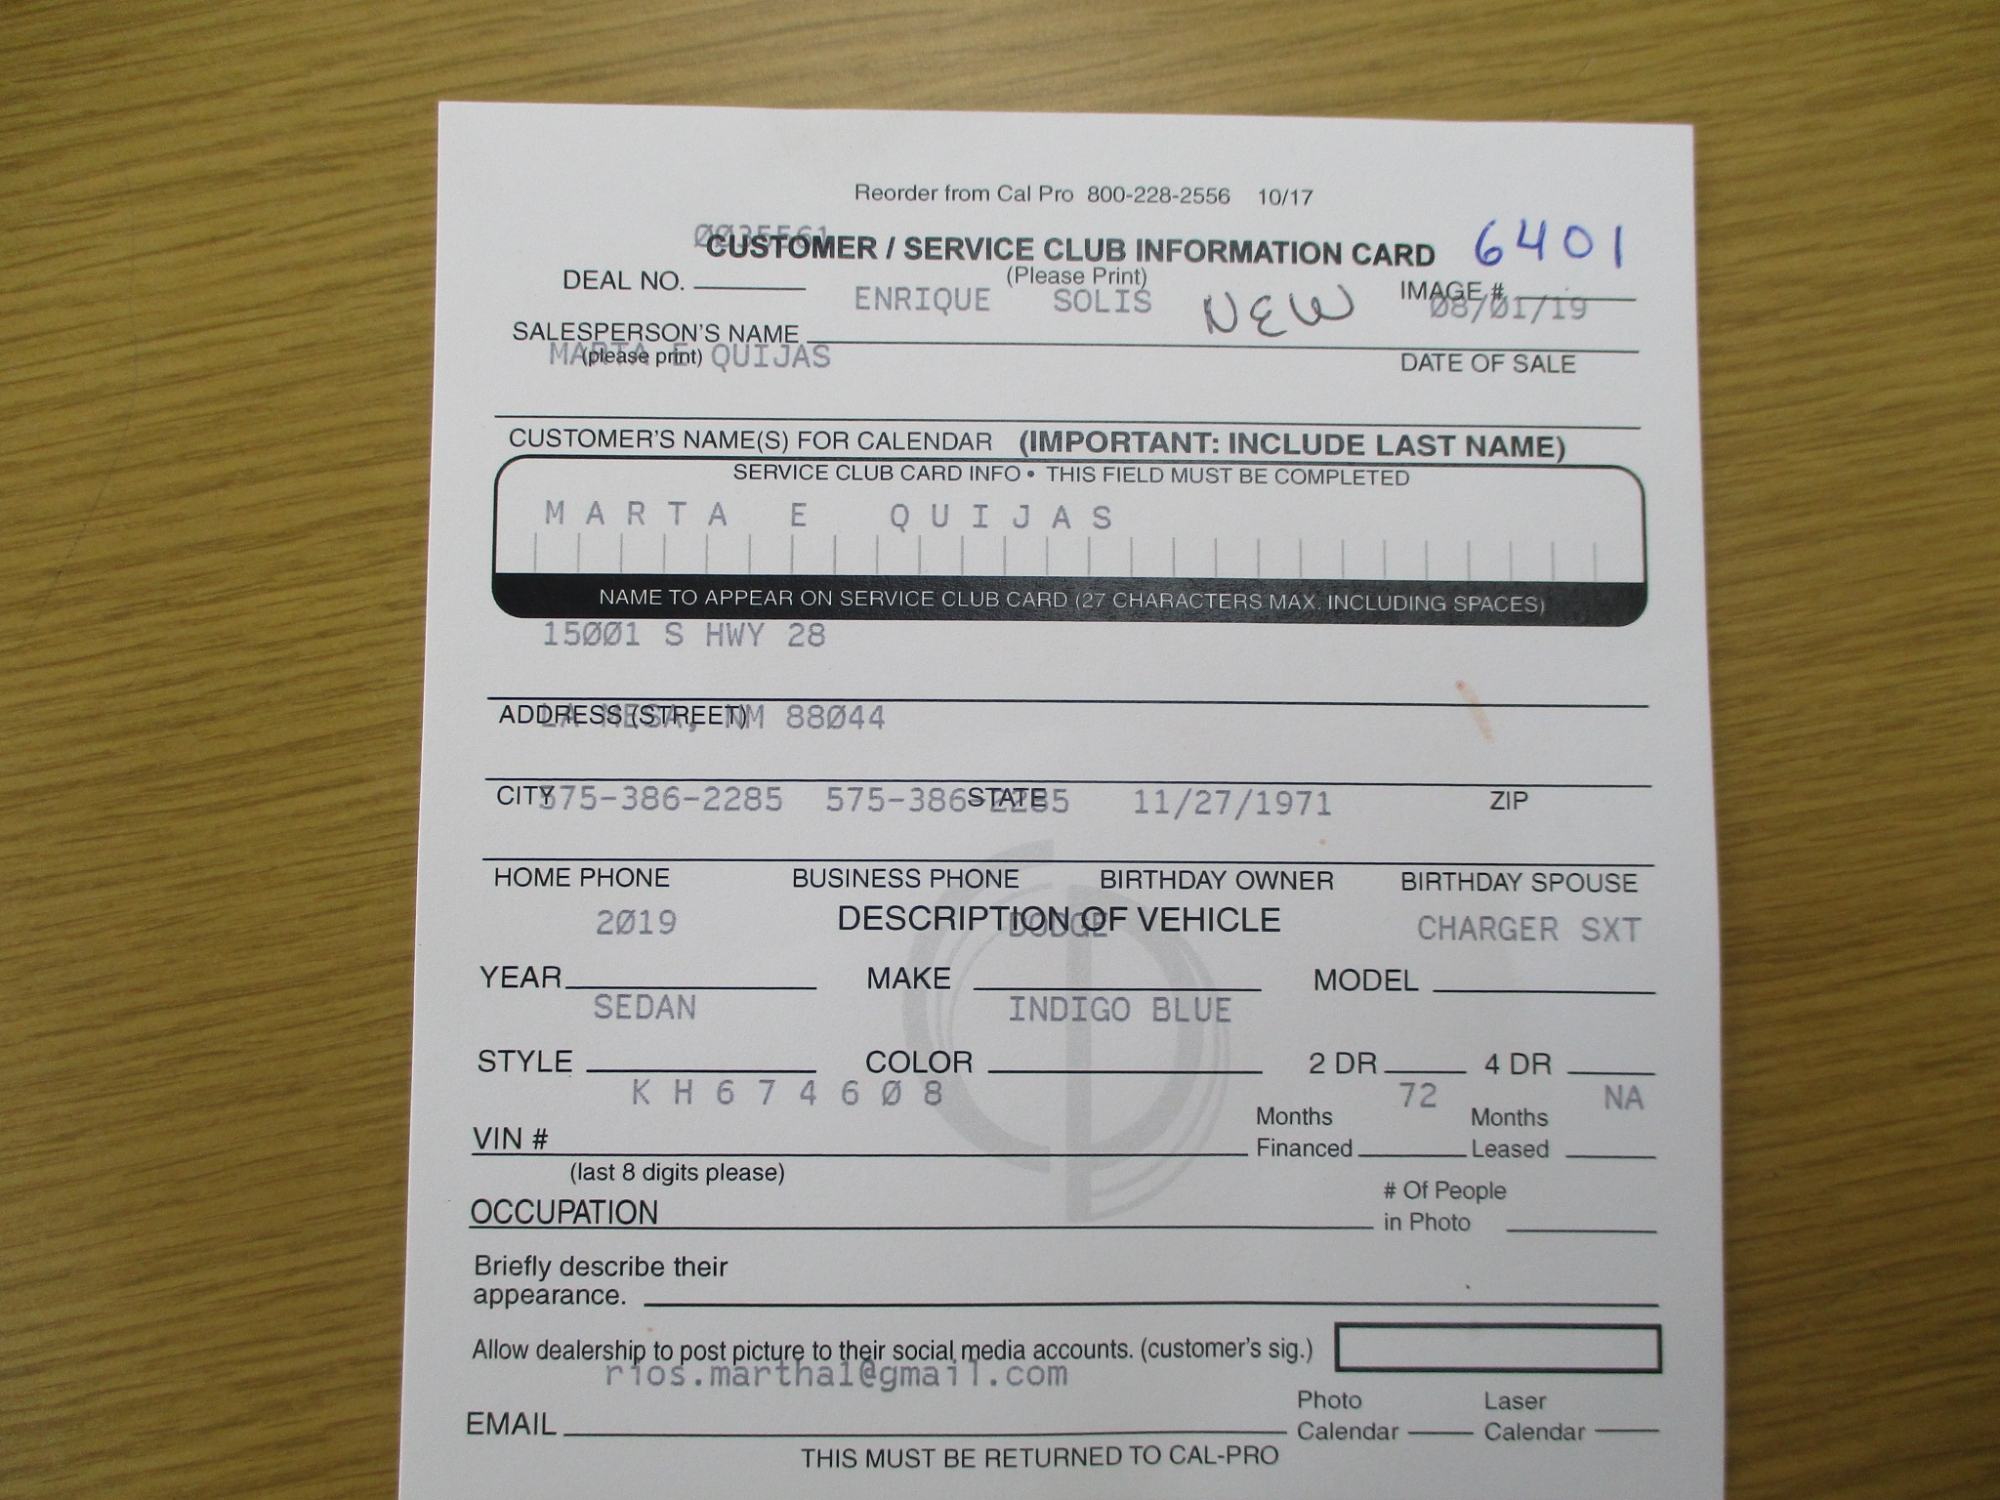 Reorder from Cal Pro 800-228-2556 10/17
0035561
CUSTOMER / SERVICE CLUB INFORMATION CARD 6401
(Please Print)
DEAL NO. IMAGE #
ENRIQUE SOLIS NEW 08/01/19
SALESPERSON'S NAME
(please print) DATE OF SALE
MARTA E QUIJAS
CUSTOMER'S NAME(S) FOR CALENDAR (IMPORTANT: INCLUDE LAST NAME)
SERVICE CLUB CARD INFO • THIS FIELD MUST BE COMPLETED
MARTA E QUIJAS
NAME TO APPEAR ON SERVICE CLUB CARD (27 CHARACTERS MAX. INCLUDING SPACES)
15001 S HWY 28
ADDRESS (STREET)
LA MESA, NM 88044
CITY STATE ZIP
575-386-2285 575-386-2285 11/27/1971
HOME PHONE BUSINESS PHONE BIRTHDAY OWNER BIRTHDAY SPOUSE
DESCRIPTION OF VEHICLE
2019 DODGE CHARGER SXT
YEAR MAKE MODEL
SEDAN INDIGO BLUE
STYLE COLOR 2 DR 4 DR
KH674608 72 NA
VIN # Months Financed Months Leased
(last 8 digits please)
OCCUPATION # Of People in Photo
Briefly describe their
appearance.
Allow dealership to post picture to their social media accounts. (customer's sig.)
rios.martha1@gmail.com
EMAIL Photo Calendar Laser Calendar
THIS MUST BE RETURNED TO CAL-PRO